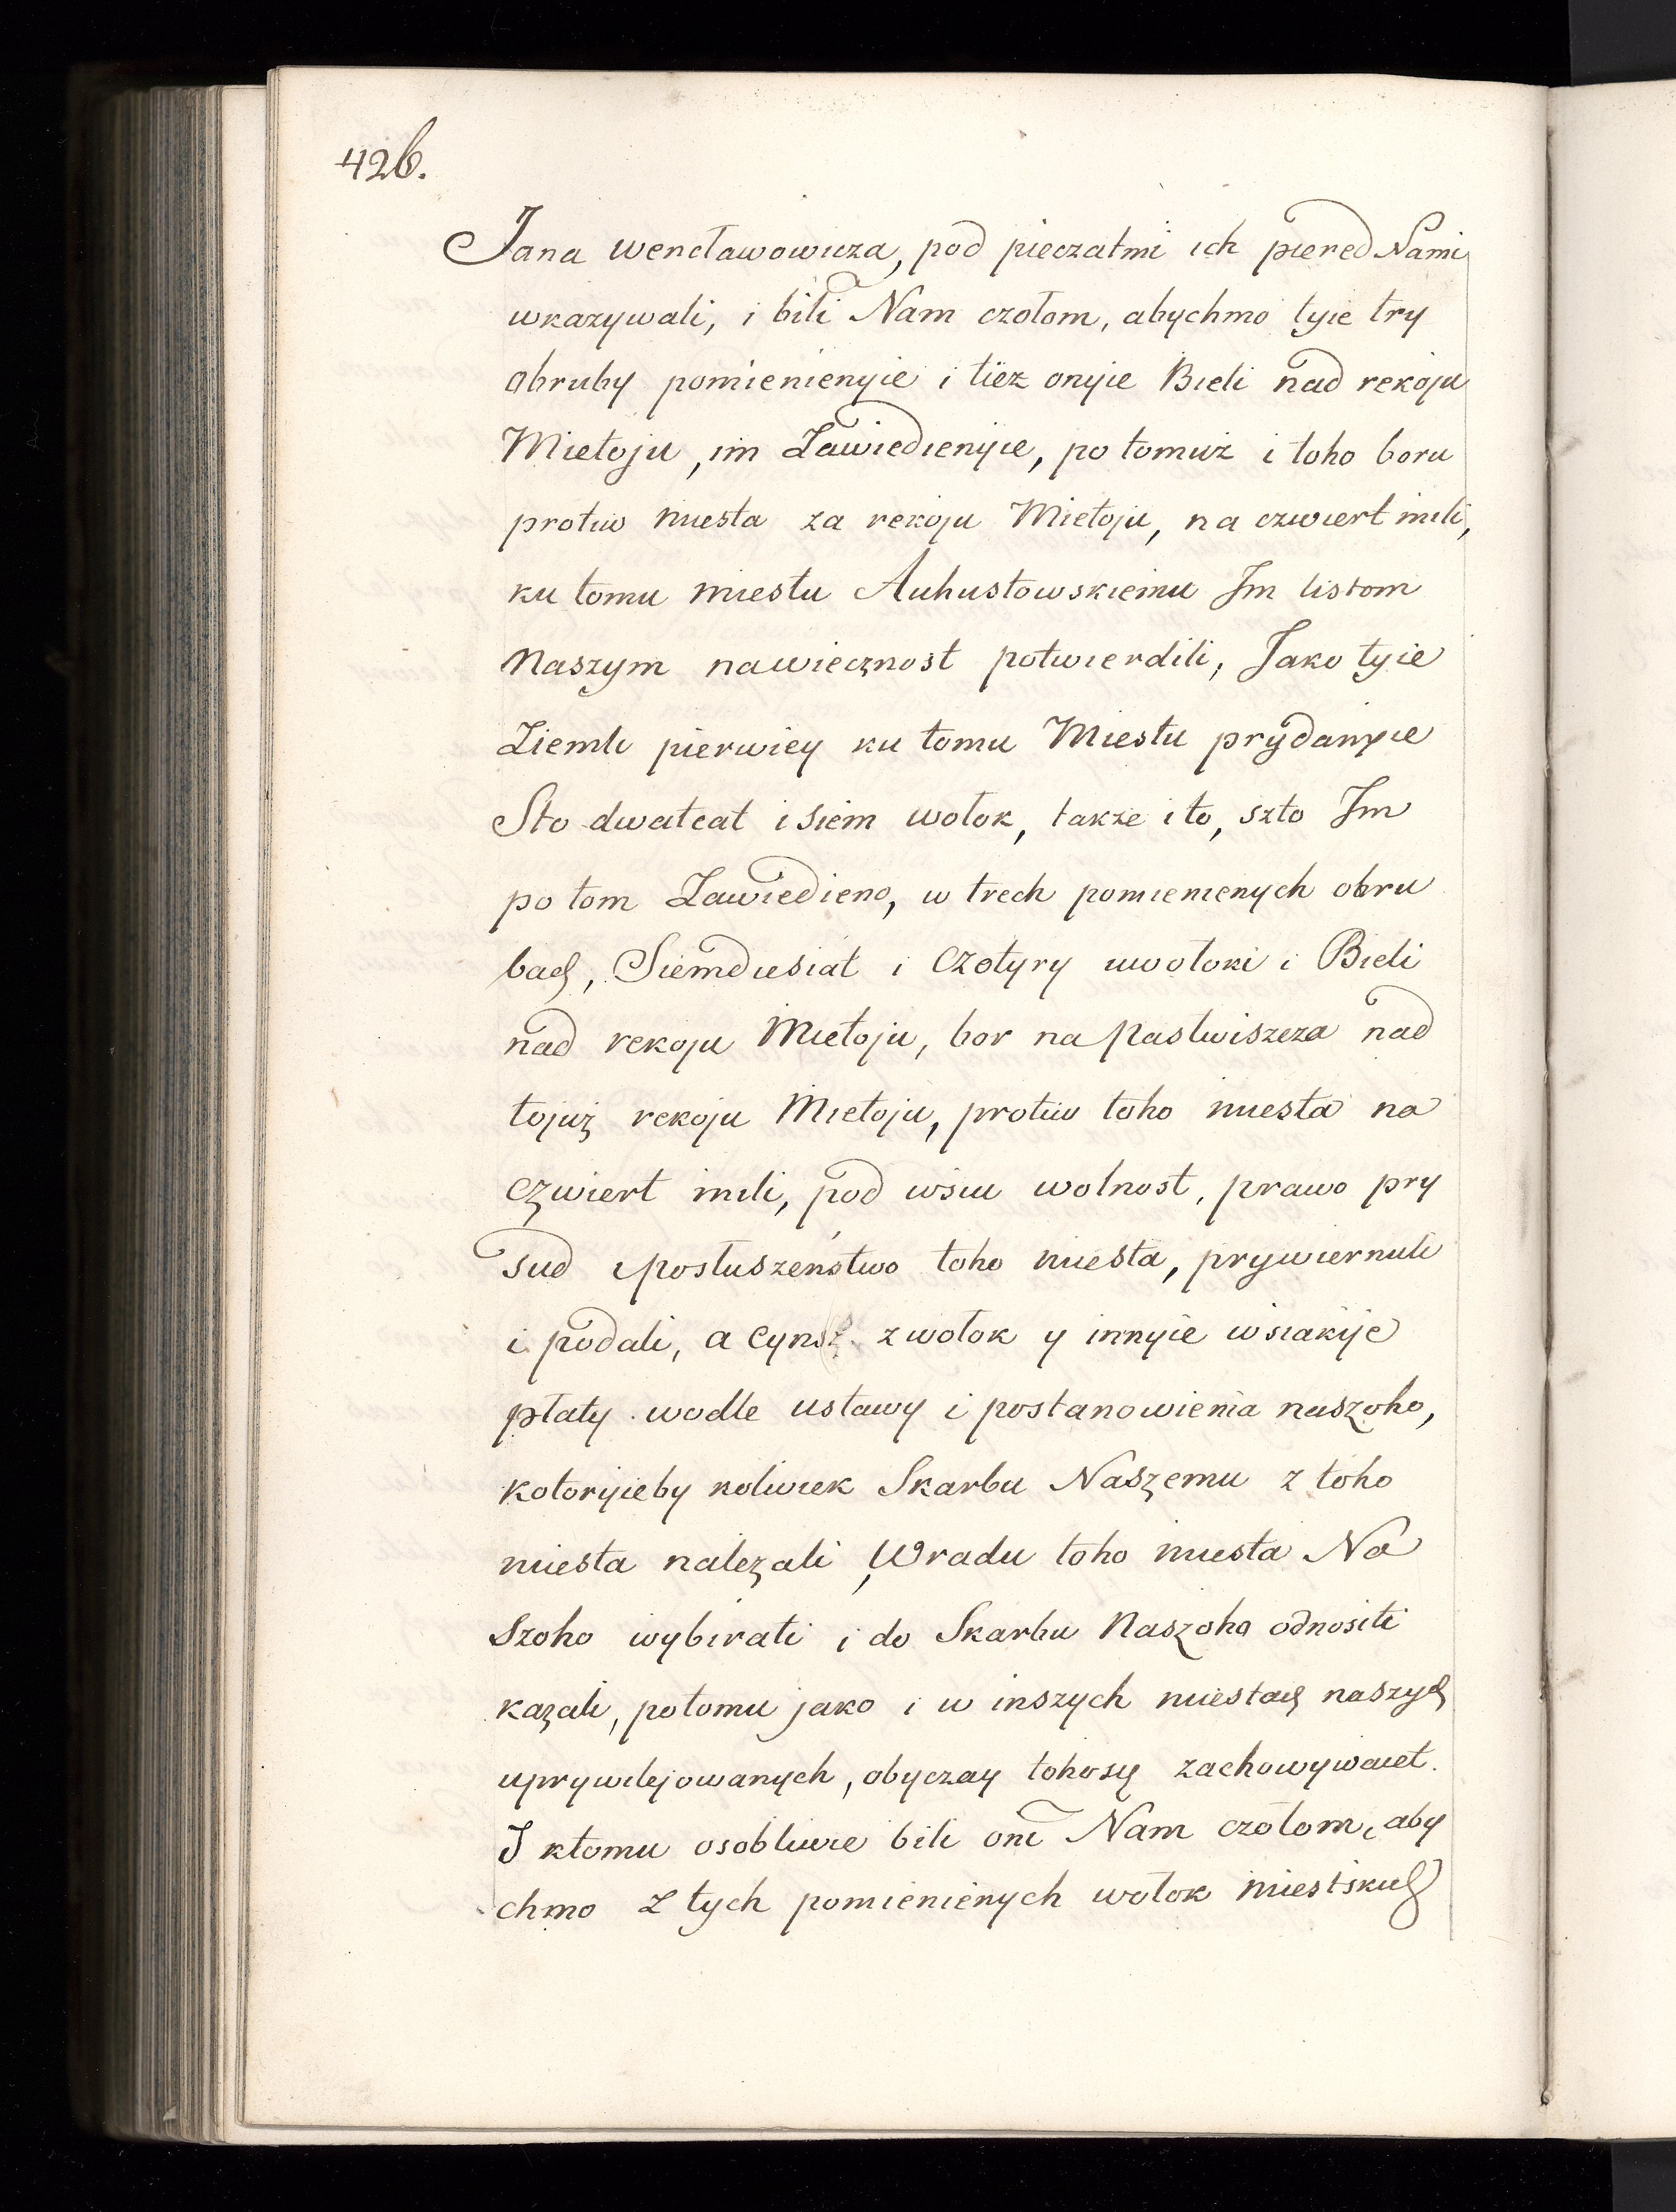 426.
Jana wencławowicza, pod pieczatmi ich pered Nami
wkazywali, i bili Nam czołom, abychmo tyie try
obruby pomienienyie i tież onyie Bieli nad rekoju
Miełoju, im Zawiedienyie, po tomuż i toho boru
protiw miesta za rekoju Miełoju, na czwiert mili,
ku tomu miestu Auhustowskiemu Im listom
Naszym nawiecznost potwierdili, Jako tyie
Ziemli pierwiey ku tomu Miestu prydanyie
Sto dwatcat i siem wołok, takze i to, szto Im
po tom Zawiedieno, w trech pomienienych obru
bach, Siemdiesiat i czotyry uwołoki i Bieli
nad rekoju Miełoju, bor na pastwiszcza nad
tojuż rekoju Miełoju, protiw toho miesta na
czwiert mili, pod wsiu wolnost, prawo pry
sud i posłuszeństwo toho miesta, prywiernuli
i podali, a cynsz z wołok y innyie wsiakije
płaty wodle ustawy i postanowienia naszoho,
kotoryieby koliwek Skarbu Naszemu z toho
miesta należali, Wradu toho miesta Na
szoho wybirati i do Skarbu Naszoho odnositi
kazali, potomu jako i w inszych miestach naszych
uprywilejowanych, obyczay tohosię zachowywaiet.
I ktomu osobliwie bili oni Nam czołom, aby
chmo z tych pomienienych wołok miestskich